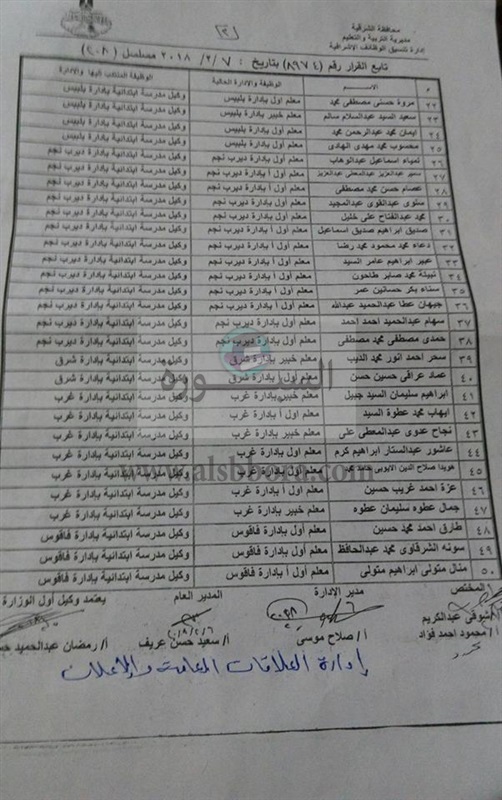 محافظة الشرقية
مديرية التربية والتعليم
إدارة تنسيق الوظائف الإشرافية
(٣)
تابع القرار رقم (٨٩٧٤) بتاريخ : ٢٠١٨/٢/٧ مسلسل (٢٠٨)
م الاســـم الوظيفة والإدارة الحالية الوظيفة المنتدب إليها والإدارة
٢٢ مروة حسنى مصطفى محمد معلم أول بإدارة بلبيس وكيل مدرسة ابتدائية بإدارة بلبيس
٢٣ سعيد السيد عبدالسلام سالم معلم خبير بإدارة بلبيس وكيل مدرسة ابتدائية بإدارة بلبيس
٢٤ ايمان محمد عبدالرحمن محمد معلم أول بإدارة بلبيس وكيل مدرسة ابتدائية بإدارة بلبيس
٢٥ محسوب محمد مهدى الهادى معلم أول بإدارة بلبيس وكيل مدرسة ابتدائية بإدارة بلبيس
٢٦ لمياء اسماعيل عبدالوهاب معلم أول أ بإدارة ديرب نجم وكيل مدرسة ابتدائية بإدارة ديرب نجم
٢٧ سمير عبدالعزيز عبدالمعطى عبدالعزيز معلم أول أ بإدارة ديرب نجم وكيل مدرسة ابتدائية بإدارة ديرب نجم
٢٨ عصام حسن محمد مصطفى معلم أول أ بإدارة ديرب نجم وكيل مدرسة ابتدائية بإدارة ديرب نجم
٢٩ سلوى عبدالقوى عبدالمجيد معلم أول أ بإدارة ديرب نجم وكيل مدرسة ابتدائية بإدارة ديرب نجم
٣٠ محمد عبدالفتاح على خليل معلم أول أ بإدارة ديرب نجم وكيل مدرسة ابتدائية بإدارة ديرب نجم
٣١ صديق ابراهيم صديق اسماعيل معلم أول أ بإدارة ديرب نجم وكيل مدرسة ابتدائية بإدارة ديرب نجم
٣٢ دعاء محمد محمود محمد رضا معلم أول أ بإدارة ديرب نجم وكيل مدرسة ابتدائية بإدارة ديرب نجم
٣٣ عبير ابراهيم عامر السيد معلم أول أ بإدارة ديرب نجم وكيل مدرسة ابتدائية بإدارة ديرب نجم
٣٤ نبيلة محمد صابر طاحون معلم أول أ بإدارة ديرب نجم وكيل مدرسة ابتدائية بإدارة ديرب نجم
٣٥ سناء بكر حسانين عمر معلم أول أ بإدارة ديرب نجم وكيل مدرسة ابتدائية بإدارة ديرب نجم
٣٦ جيهان عطا عبدالحميد عبدالله معلم أول أ بإدارة ديرب نجم وكيل مدرسة ابتدائية بإدارة ديرب نجم
٣٧ سهام عبدالحميد احمد احمد معلم أول بإدارة ديرب نجم وكيل مدرسة ابتدائية بإدارة ديرب نجم
٣٨ حمدى مصطفى محمد مصطفى معلم أول بإدارة ديرب نجم وكيل مدرسة ابتدائية بإدارة ديرب نجم
٣٩ سحر احمد انور محمد الديب معلم خبير بإدارة شرق وكيل مدرسة ابتدائية بإدارة شرق
٤٠ عماد عراقى حسين حسن معلم أول أ بإدارة شرق وكيل مدرسة ابتدائية بإدارة شرق
٤١ ابراهيم سليمان السيد جبيل معلم خبير بإدارة غرب وكيل مدرسة ابتدائية بإدارة غرب
٤٢ ايهاب محمد عطوة السيد معلم أول أ بإدارة غرب وكيل مدرسة ابتدائية بإدارة غرب
٤٣ نجاح عدوى عبدالمعطى على معلم خبير بإدارة غرب وكيل مدرسة ابتدائية بإدارة غرب
٤٤ عاشور عبدالستار ابراهيم كرم معلم أول بإدارة غرب وكيل مدرسة ابتدائية بإدارة غرب
٤٥ هويدا صلاح الدين الايوبى حامد محمد معلم أول بإدارة غرب وكيل مدرسة ابتدائية بإدارة غرب
٤٦ عزة احمد غريب حسين معلم أول أ بإدارة غرب وكيل مدرسة ابتدائية بإدارة غرب
٤٧ جمال عطوه سليمان عطوه معلم خبير بإدارة غرب وكيل مدرسة ابتدائية بإدارة غرب
٤٨ طارق احمد محمد حسين معلم أول أ بإدارة فاقوس وكيل مدرسة ابتدائية بإدارة فاقوس
٤٩ سونه الشرقاوى محمد عبدالحافظ معلم أول أ بإدارة فاقوس وكيل مدرسة ابتدائية بإدارة فاقوس
٥٠ منال متولى ابراهيم متولى معلم أول أ بإدارة فاقوس وكيل مدرسة ابتدائية بإدارة فاقوس
السبورة
www.alsboora.com
المختص مدير الإدارة المدير العام يعتمد وكيل أول الوزارة
شوقى عبدالكريم
أ / محمود احمد فؤاد أ/ صلاح موسى أ/ سعيد حسن عريف أ/ رمضان عبدالحميد
إدارة العلاقات العامة والإعلان